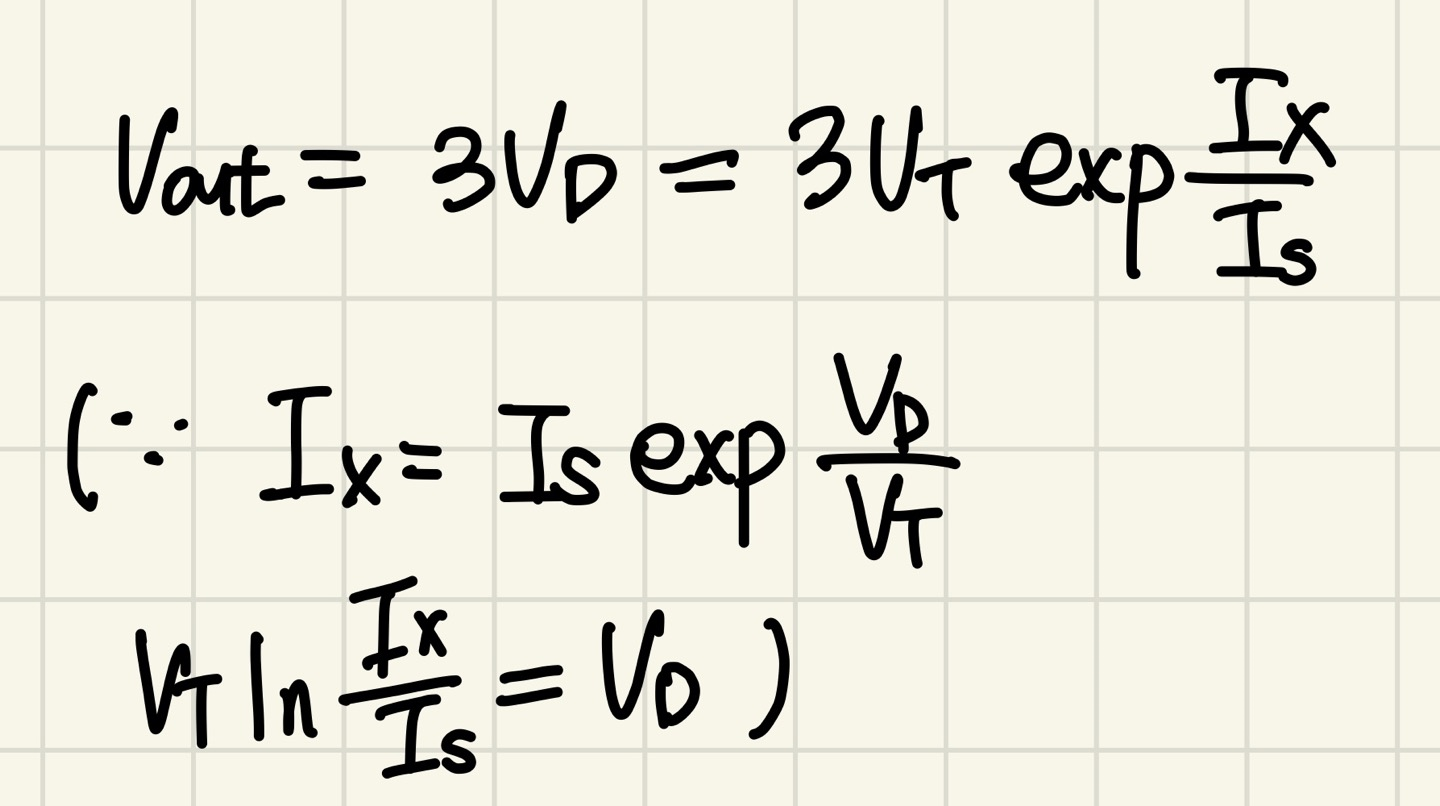 V_out = 3V_D = 3V_T exp I_x/I_s
(∵ I_x = I_s exp V_D/V_T
V_T ln I_x/I_s = V_D )